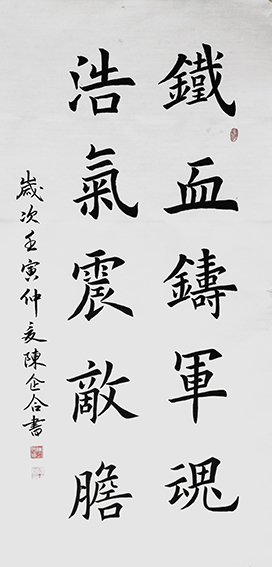 鐵血鑄軍魂
浩氣震敵膽
歲次壬寅仲夏陳企合書